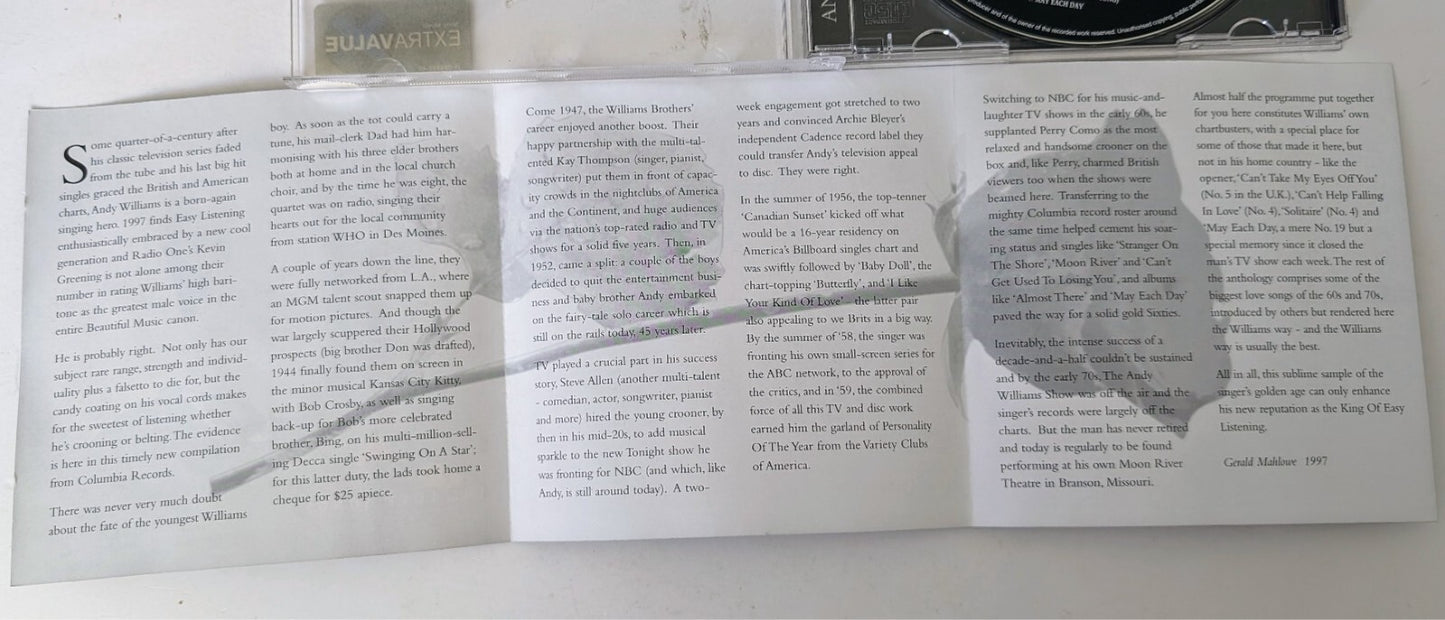 EXTRAVALUE
MAY EACH DAY
producer and of the owner of the recorded work reserved. Unauthorised copying, public
AN
Some quarter-of-a-century after
his classic television series faded
from the tube and his last big hit
singles graced the British and American
charts, Andy Williams is a born-again
singing hero. 1997 finds Easy Listening
enthusiastically embraced by a new cool
generation and Radio One's Kevin
Greening is not alone among their
number in rating Williams' high bari-
tone as the greatest male voice in the
entire Beautiful Music canon.
He is probably right. Not only has our
subject rare range, strength and individ-
uality plus a falsetto to die for, but the
candy coating on his vocal cords makes
for the sweetest of listening whether
he's crooning or belting. The evidence
is here in this timely new compilation
from Columbia Records.
There was never very much doubt
about the fate of the youngest Williams
boy. As soon as the tot could carry a
tune, his mail-clerk Dad had him har-
monising with his three elder brothers
both at home and in the local church
choir, and by the time he was eight, the
quartet was on radio, singing their
hearts out for the local community
from station WHO in Des Moines.
A couple of years down the line, they
were fully networked from L.A., where
an MGM talent scout snapped them up
for motion pictures. And though the
war largely scuppered their Hollywood
prospects (big brother Don was drafted),
1944 finally found them on screen in
the minor musical Kansas City Kitty,
with Bob Crosby, as well as singing
back-up for Bob's more celebrated
brother, Bing, on his multi-million-sell-
ing Decca single 'Swinging On A Star';
for this latter duty, the lads took home a
cheque for $25 apiece.
Come 1947, the Williams Brothers'
career enjoyed another boost. Their
happy partnership with the multi-tal-
ented Kay Thompson (singer, pianist,
songwriter) put them in front of capac-
ity crowds in the nightclubs of America
and the Continent, and huge audiences
via the nation's top-rated radio and TV
shows for a solid five years. Then, in
1952, came a split: a couple of the boys
decided to quit the entertainment busi-
ness and baby brother Andy embarked
on the fairy-tale solo career which is
still on the rails today, 45 years later.
TV played a crucial part in his success
story, Steve Allen (another multi-talent
- comedian, actor, songwriter, pianist
and more) hired the young crooner, by
then in his mid-20s, to add musical
sparkle to the new Tonight show he
was fronting for NBC (and which, like
Andy, is still around today). A two-
week engagement got stretched to two
years and convinced Archie Bleyer's
independent Cadence record label they
could transfer Andy's television appeal
to disc. They were right.
In the summer of 1956, the top-tenner
'Canadian Sunset' kicked off what
would be a 16-year residency on
America's Billboard singles chart and
was swiftly followed by 'Baby Doll', the
chart-topping 'Butterfly', and 'I Like
Your Kind Of Love' - the latter pair
also appealing to we Brits in a big way.
By the summer of '58, the singer was
fronting his own small-screen series for
the ABC network, to the approval of
the critics, and in '59, the combined
force of all this TV and disc work
earned him the garland of Personality
Of The Year from the Variety Clubs
of America.
Switching to NBC for his music-and-
laughter TV shows in the early 60s, he
supplanted Perry Como as the most
relaxed and handsome crooner on the
box and, like Perry, charmed British
viewers too when the shows were
beamed here. Transferring to the
mighty Columbia record roster around
the same time helped cement his soar-
ing status and singles like 'Stranger On
The Shore', 'Moon River' and 'Can't
Get Used To Losing You', and albums
like 'Almost There' and 'May Each Day'
paved the way for a solid gold Sixties.
Inevitably, the intense success of a
decade-and-a-half couldn't be sustained
and by the early 70s, The Andy
Williams Show was off the air and the
singer's records were largely off the
charts. But the man has never retired
and today is regularly to be found
performing at his own Moon River
Theatre in Branson, Missouri.
Almost half the programme put together
for you here constitutes Williams' own
chartbusters, with a special place for
some of those that made it here, but
not in his home country - like the
opener, 'Can't Take My Eyes Off You'
(No. 5 in the U.K.), 'Can't Help Falling
In Love' (No. 4), 'Solitaire' (No. 4) and
'May Each Day, a mere No. 19 but a
special memory since it closed the
man's TV show each week. The rest of
the anthology comprises some of the
biggest love songs of the 60s and 70s,
introduced by others but rendered here
the Williams way - and the Williams
way is usually the best.
All in all, this sublime sample of the
singer's golden age can only enhance
his new reputation as the King Of Easy
Listening.
Gerald Mahlowe 1997